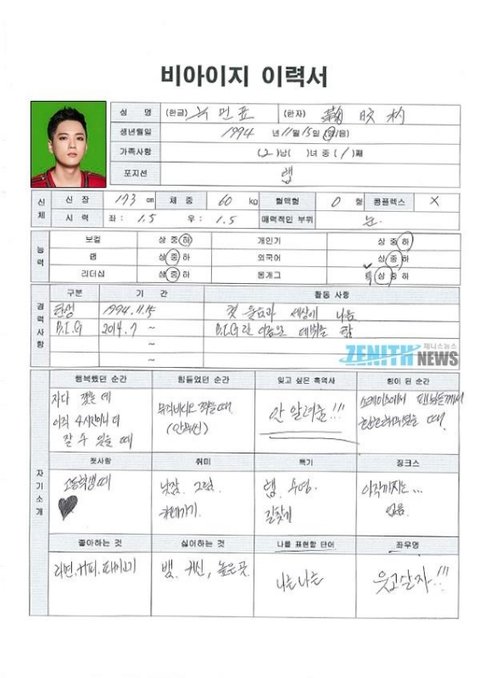 비아이지 이력서
성 명 (한글) 국 민 표 (한자)
생년월일 1994 년 11 월 15 일 (양)음)
가족사항 (2)남( )녀 중 (1)째
포지션 랩
신체 신 장 173 cm 체 중 60 kg 혈액형 O 형 콤플렉스 X
시 력 좌 : 1.5 우 : 1.5 매력적인 부위 눈
능력 보컬 상 중 하 개인기 상 중 하
랩 상 중 하 외국어 상 중 하
리더십 상 중 하 몸개그 특 상 중 하
경력사항 구분 기 간 활동 사항
탄생 1994.11.15 첫 울음과 세상에 나옴
B.I.G 2014.7 ~ B.I.G란 이름으로 데뷔를 함
~
제니스뉴스
ZENITH NEWS
자기소개
행복했던 순간 힘들었던 순간 잊고 싶은 흑역사 힘이 된 순간
자다 깼는데 뮤직비디오 찍을때 안 알려줌!!! 스케이트에서 팬분들께서
아직 4시간이나 더 (안무씬)
잘 수 있을 때
첫사랑 취미 특기 징크스
고등학생때 낮잠, 그림, 랩, 수영, 아직까지는...
♥ 길찾기 없음
좋아하는 것 싫어하는 것 나를 표현할 단어 좌우명
뱀, 귀신, 높은곳 나는나는 웃고살자!!!